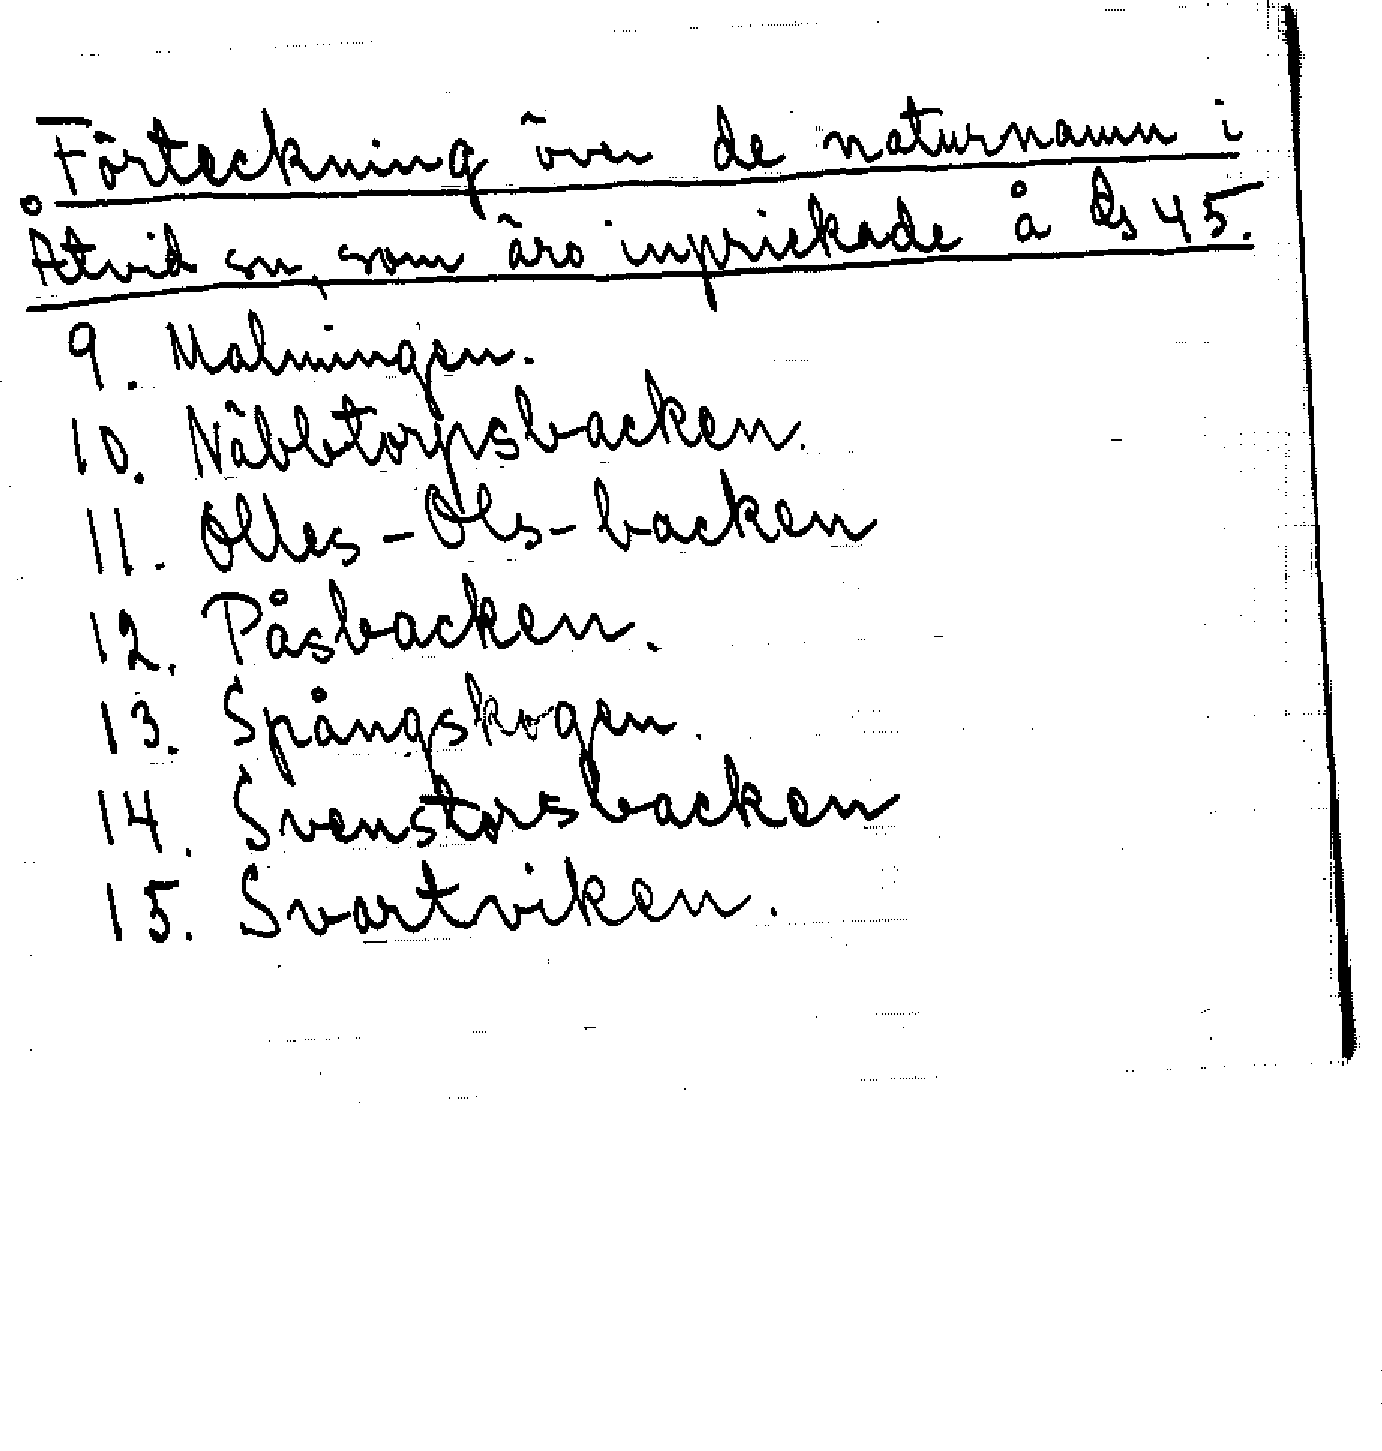 Förteckning över de naturnamn i
Åtvid sn, som äro inprickade å Ds 45.
9. Malmingen.
10. Näbbtorpsbacken.
11. Olles-Ols-backen
12. Påsbacken.
13. Spångskogen.
14. Svenstorsbacken
15. Svartviken.